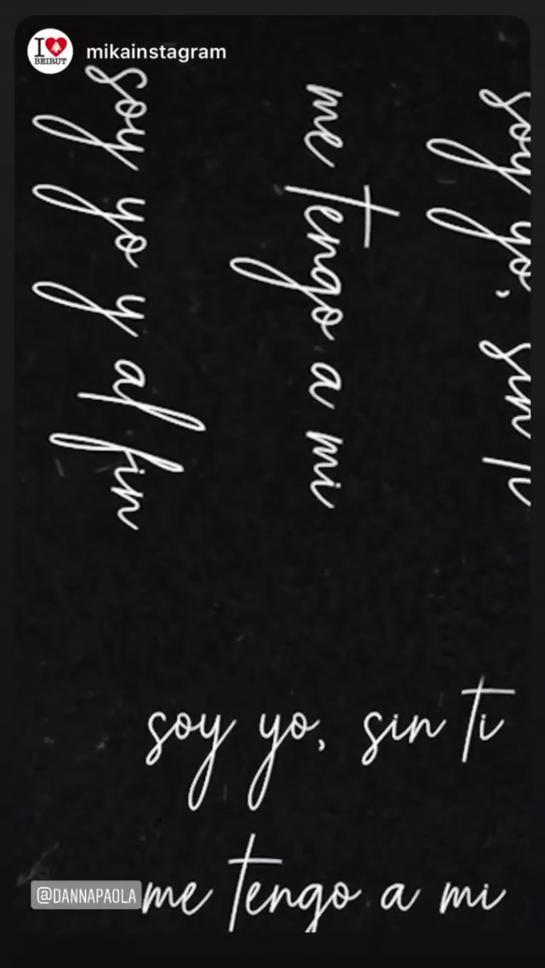 I ♥ BEIRUT
mikainstagram
soy yo, sin ti
me tengo a mi
soy yo y al fin
soy yo, sin ti
me tengo a mi
@DANNAPAOLA